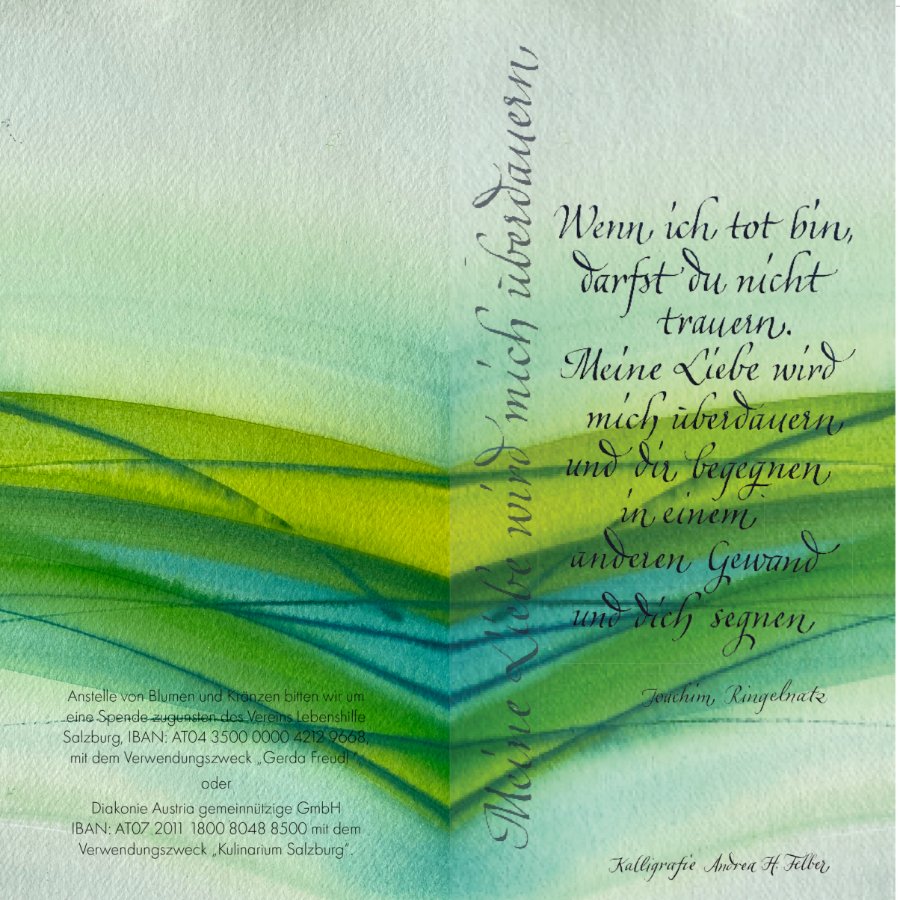 Anstelle von Blumen und Kränzen bitten wir um
eine Spende zugunsten des Vereins Lebenshilfe
Salzburg, IBAN: AT04 3500 0000 4212 9668,
mit dem Verwendungszweck „Gerda Freudl“,
oder
Diakonie Austria gemeinnützige GmbH
IBAN: AT07 2011 1800 8048 8500 mit dem
Verwendungszweck „Kulinarium Salzburg“.
Meine Liebe wird mich überdauern
Wenn ich tot bin,
darfst du nicht
trauern.
Meine Liebe wird
mich überdauern
und dir begegnen
in einem
anderen Gewand
und dich segnen
Joachim Ringelnatz
Kalligrafie Andrea H. Felber